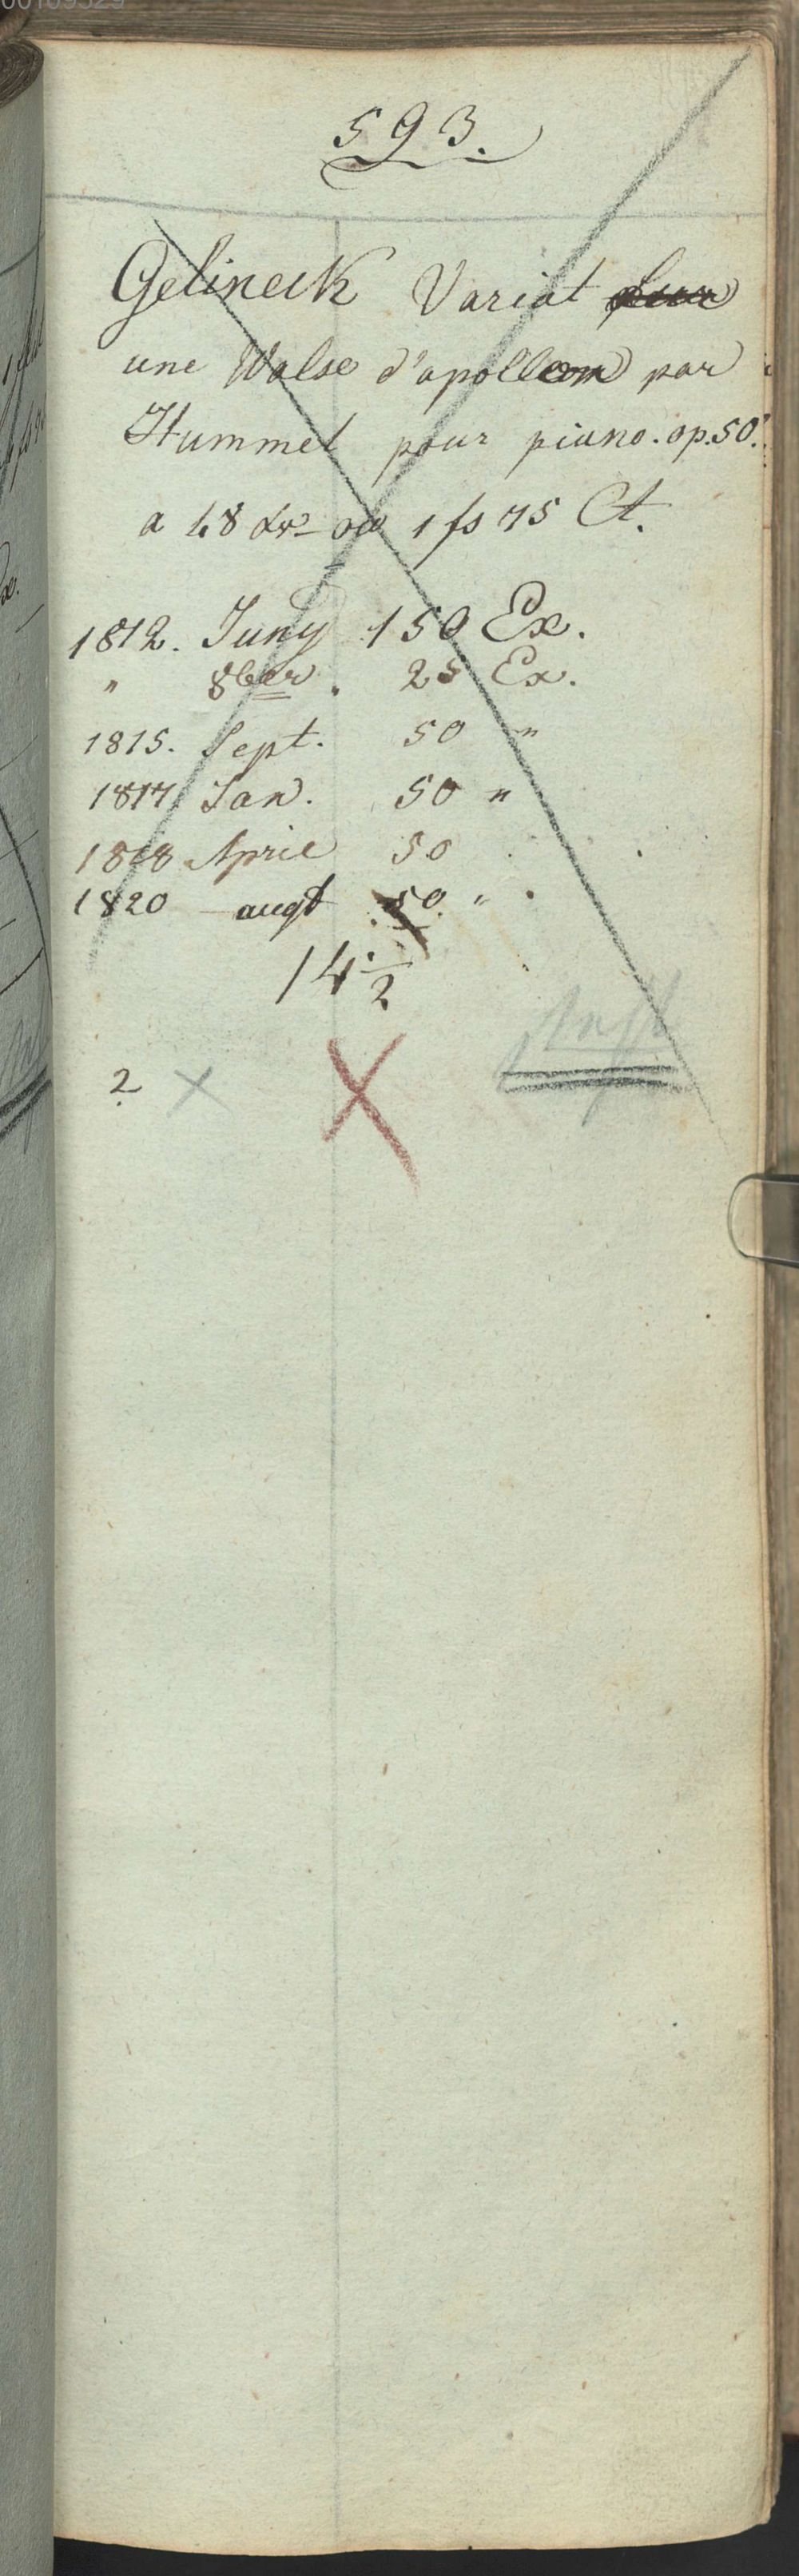 00109529
593.
Gelineck Variat sur
une Walse d'apollon par
Hummel pour piano. op. 50.
a 48 Xr ou 1 fs 75 Ct.
1812. Juny 150 Ex.
" 8ber. 25 Ex.
1815. Sept. 50 "
1817 Jan. 50 "
1818 April 50
1820 augt 50 "
14 1/2
2